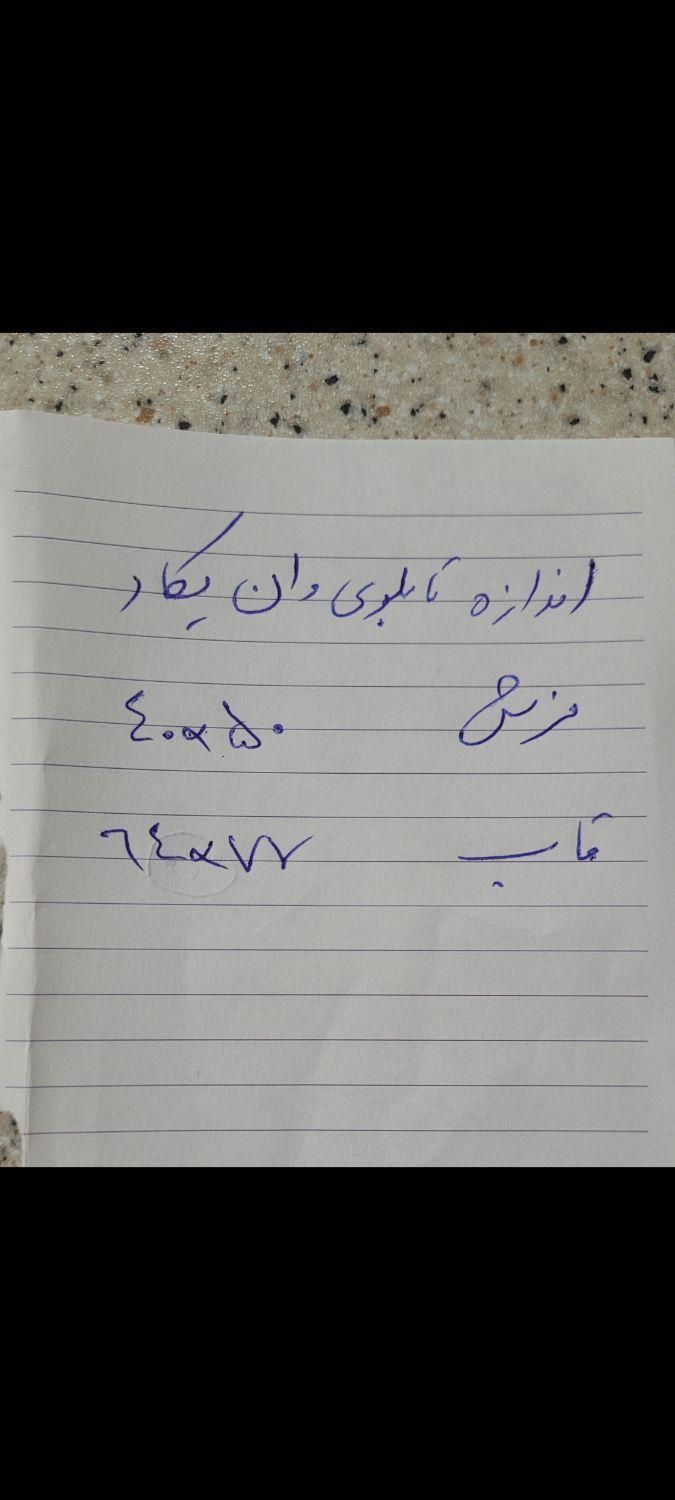 اندازه تابلوی وان یکاد
فرش ٤٠×۵۰
قاب ٦٤×۷۷